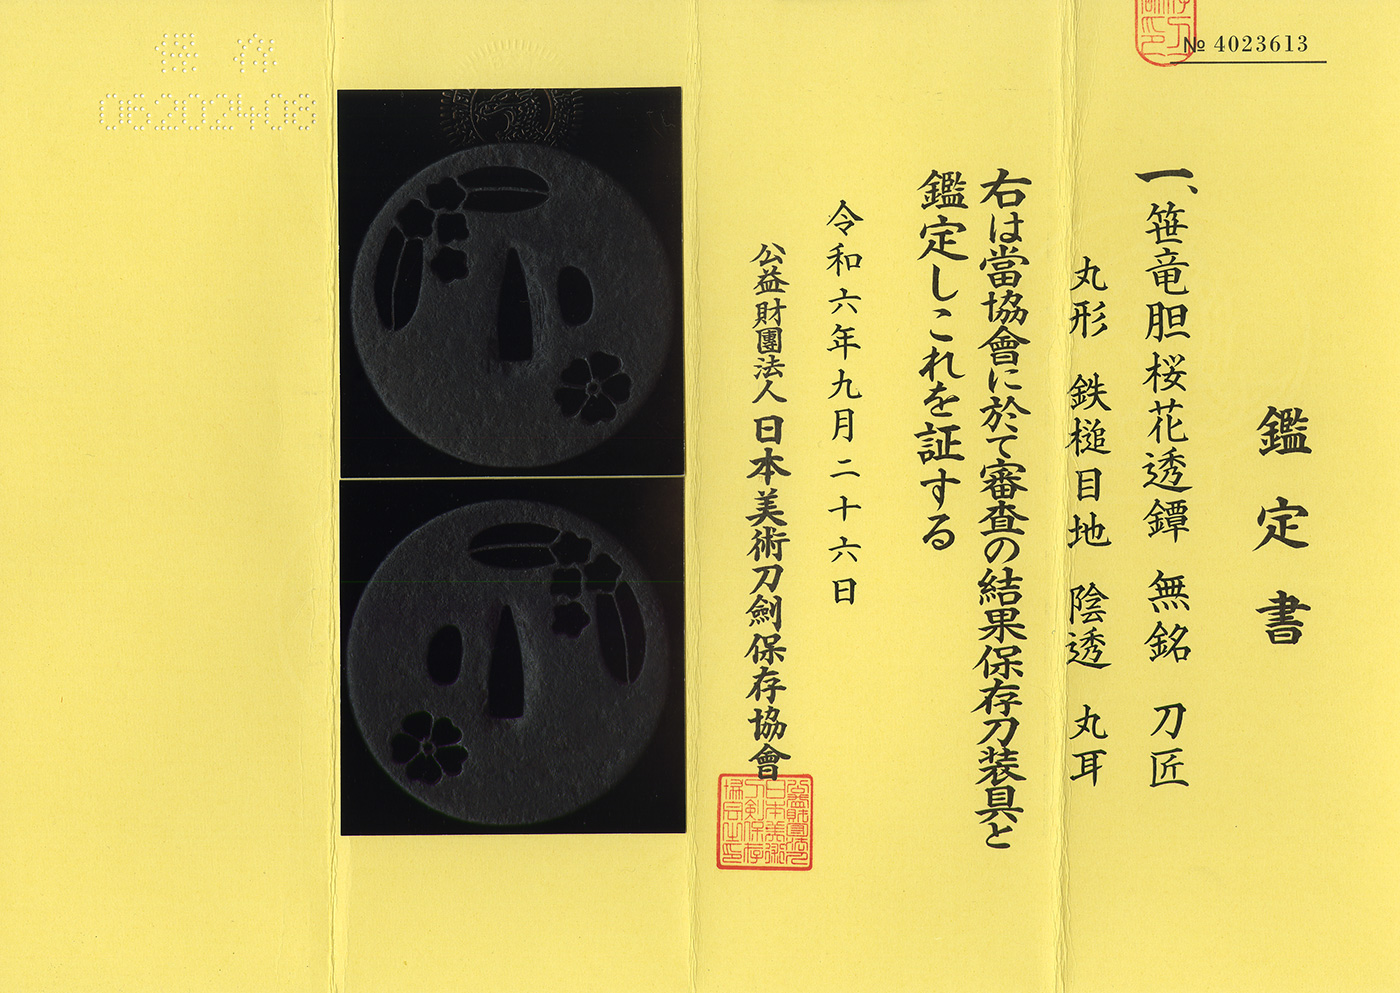 № 4023613
鑑定書
一、笹竜胆桜花透鐔 無銘 刀匠
丸形 鉄槌目地 陰透 丸耳
右は當協會に於て審査の結果保存刀装具と
鑑定しこれを証する
令和六年九月二十六日
公益財團法人 日本美術刀劍保存協會
保存
06202408